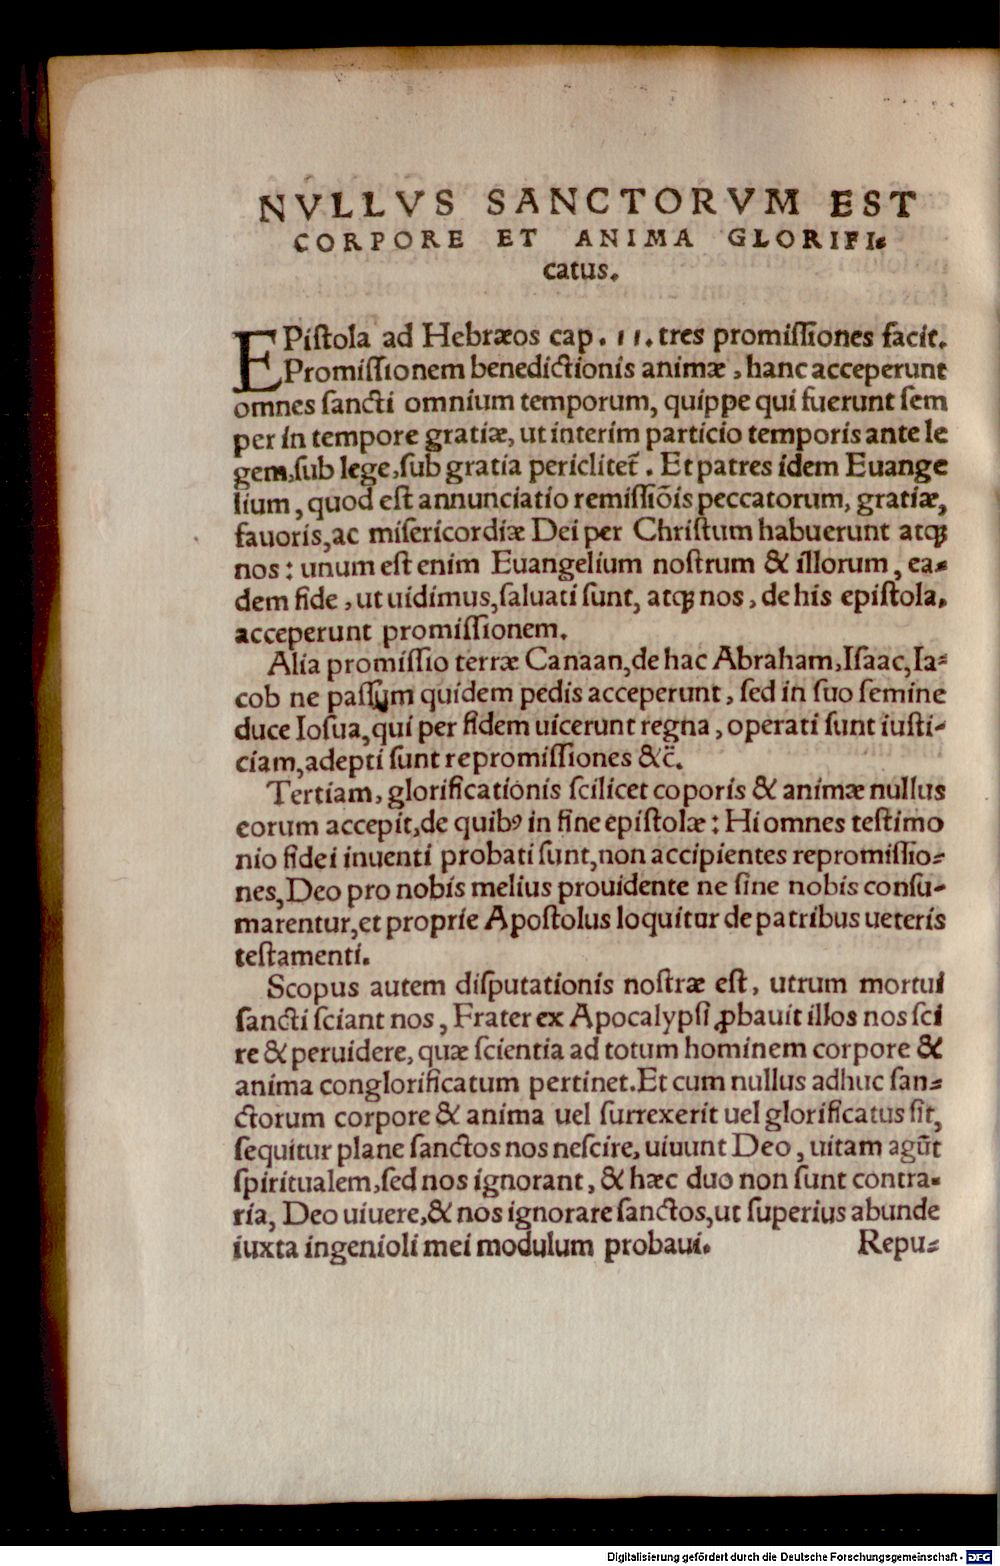 NVLLVS SANCTORVM EST
CORPORE ET ANIMA GLORIFI⸗
catus.
EPiſtola ad Hebræos cap. 11. tres promiſſiones facit.
Promiſſionem benedictionis animæ, hanc acceperunt
omnes ſancti omnium temporum, quippe qui fuerunt ſem
per in tempore gratiæ, ut interim particio temporis ante le
gem, ſub lege, ſub gratia periclitet̃. Et patres idem Euange
lium, quod eſt annunciatio remiſſiõis peccatorum, gratiæ,
fauoris, ac miſericordiæ Dei per Chriſtum habuerunt atqꝫ
nos: unum eſt enim Euangelium noſtrum & illorum, ea⸗
dem fide, ut uidimus, ſaluati ſunt, atqꝫ nos, de his epiſtola.
acceperunt promiſſionem.
Alia promiſſio terræ Canaan, de hac Abraham, Iſaac, Ia⸗
cob ne paſſum quidem pedis acceperunt, ſed in ſuo ſemine
duce Ioſua, qui per fidem uicerunt regna, operati ſunt iuſti⸗
ciam, adepti ſunt repromiſſiones &c̃.
Tertiam, glorificationis ſcilicet coporis & animæ nullus
eorum accepit, de quibꝰ in fine epiſtolæ: Hi omnes teſtimo
nio fidei inuenti probati ſunt, non accipientes repromiſſio⸗
nes, Deo pro nobis melius prouidente ne ſine nobis conſu⸗
marentur, et proprie Apoſtolus loquitur de patribus ueteris
teſtamenti.
Scopus autem diſputationis noſtræ eſt, utrum mortui
ſancti ſciant nos, Frater ex Apocalypſi ꝓbauit illos nos ſci
re & peruidere, quæ ſcientia ad totum hominem corpore &
anima conglorificatum pertinet. Et cum nullus adhuc ſan⸗
ctorum corpore & anima uel ſurrexerit uel glorificatus ſit,
ſequitur plane ſanctos nos neſcire, uiuunt Deo, uitam agũt
ſpiritualem, ſed nos ignorant, & hæc duo non ſunt contra⸗
ria, Deo uiuere, & nos ignorare ſanctos, ut ſuperius abunde
iuxta ingenioli mei modulum probaui. Repu⸗
Digitalisierung gefördert durch die Deutsche Forschungsgemeinschaft - DFG